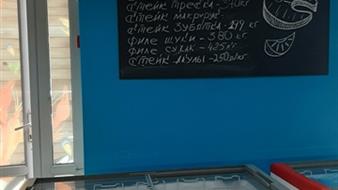 стейк трески - 340 кг
стейк макрурус
стейк зубатка - 299 кг
филе щуки - 380 кг.
филе судак - 425 кг
стейк акулы - 250 кг